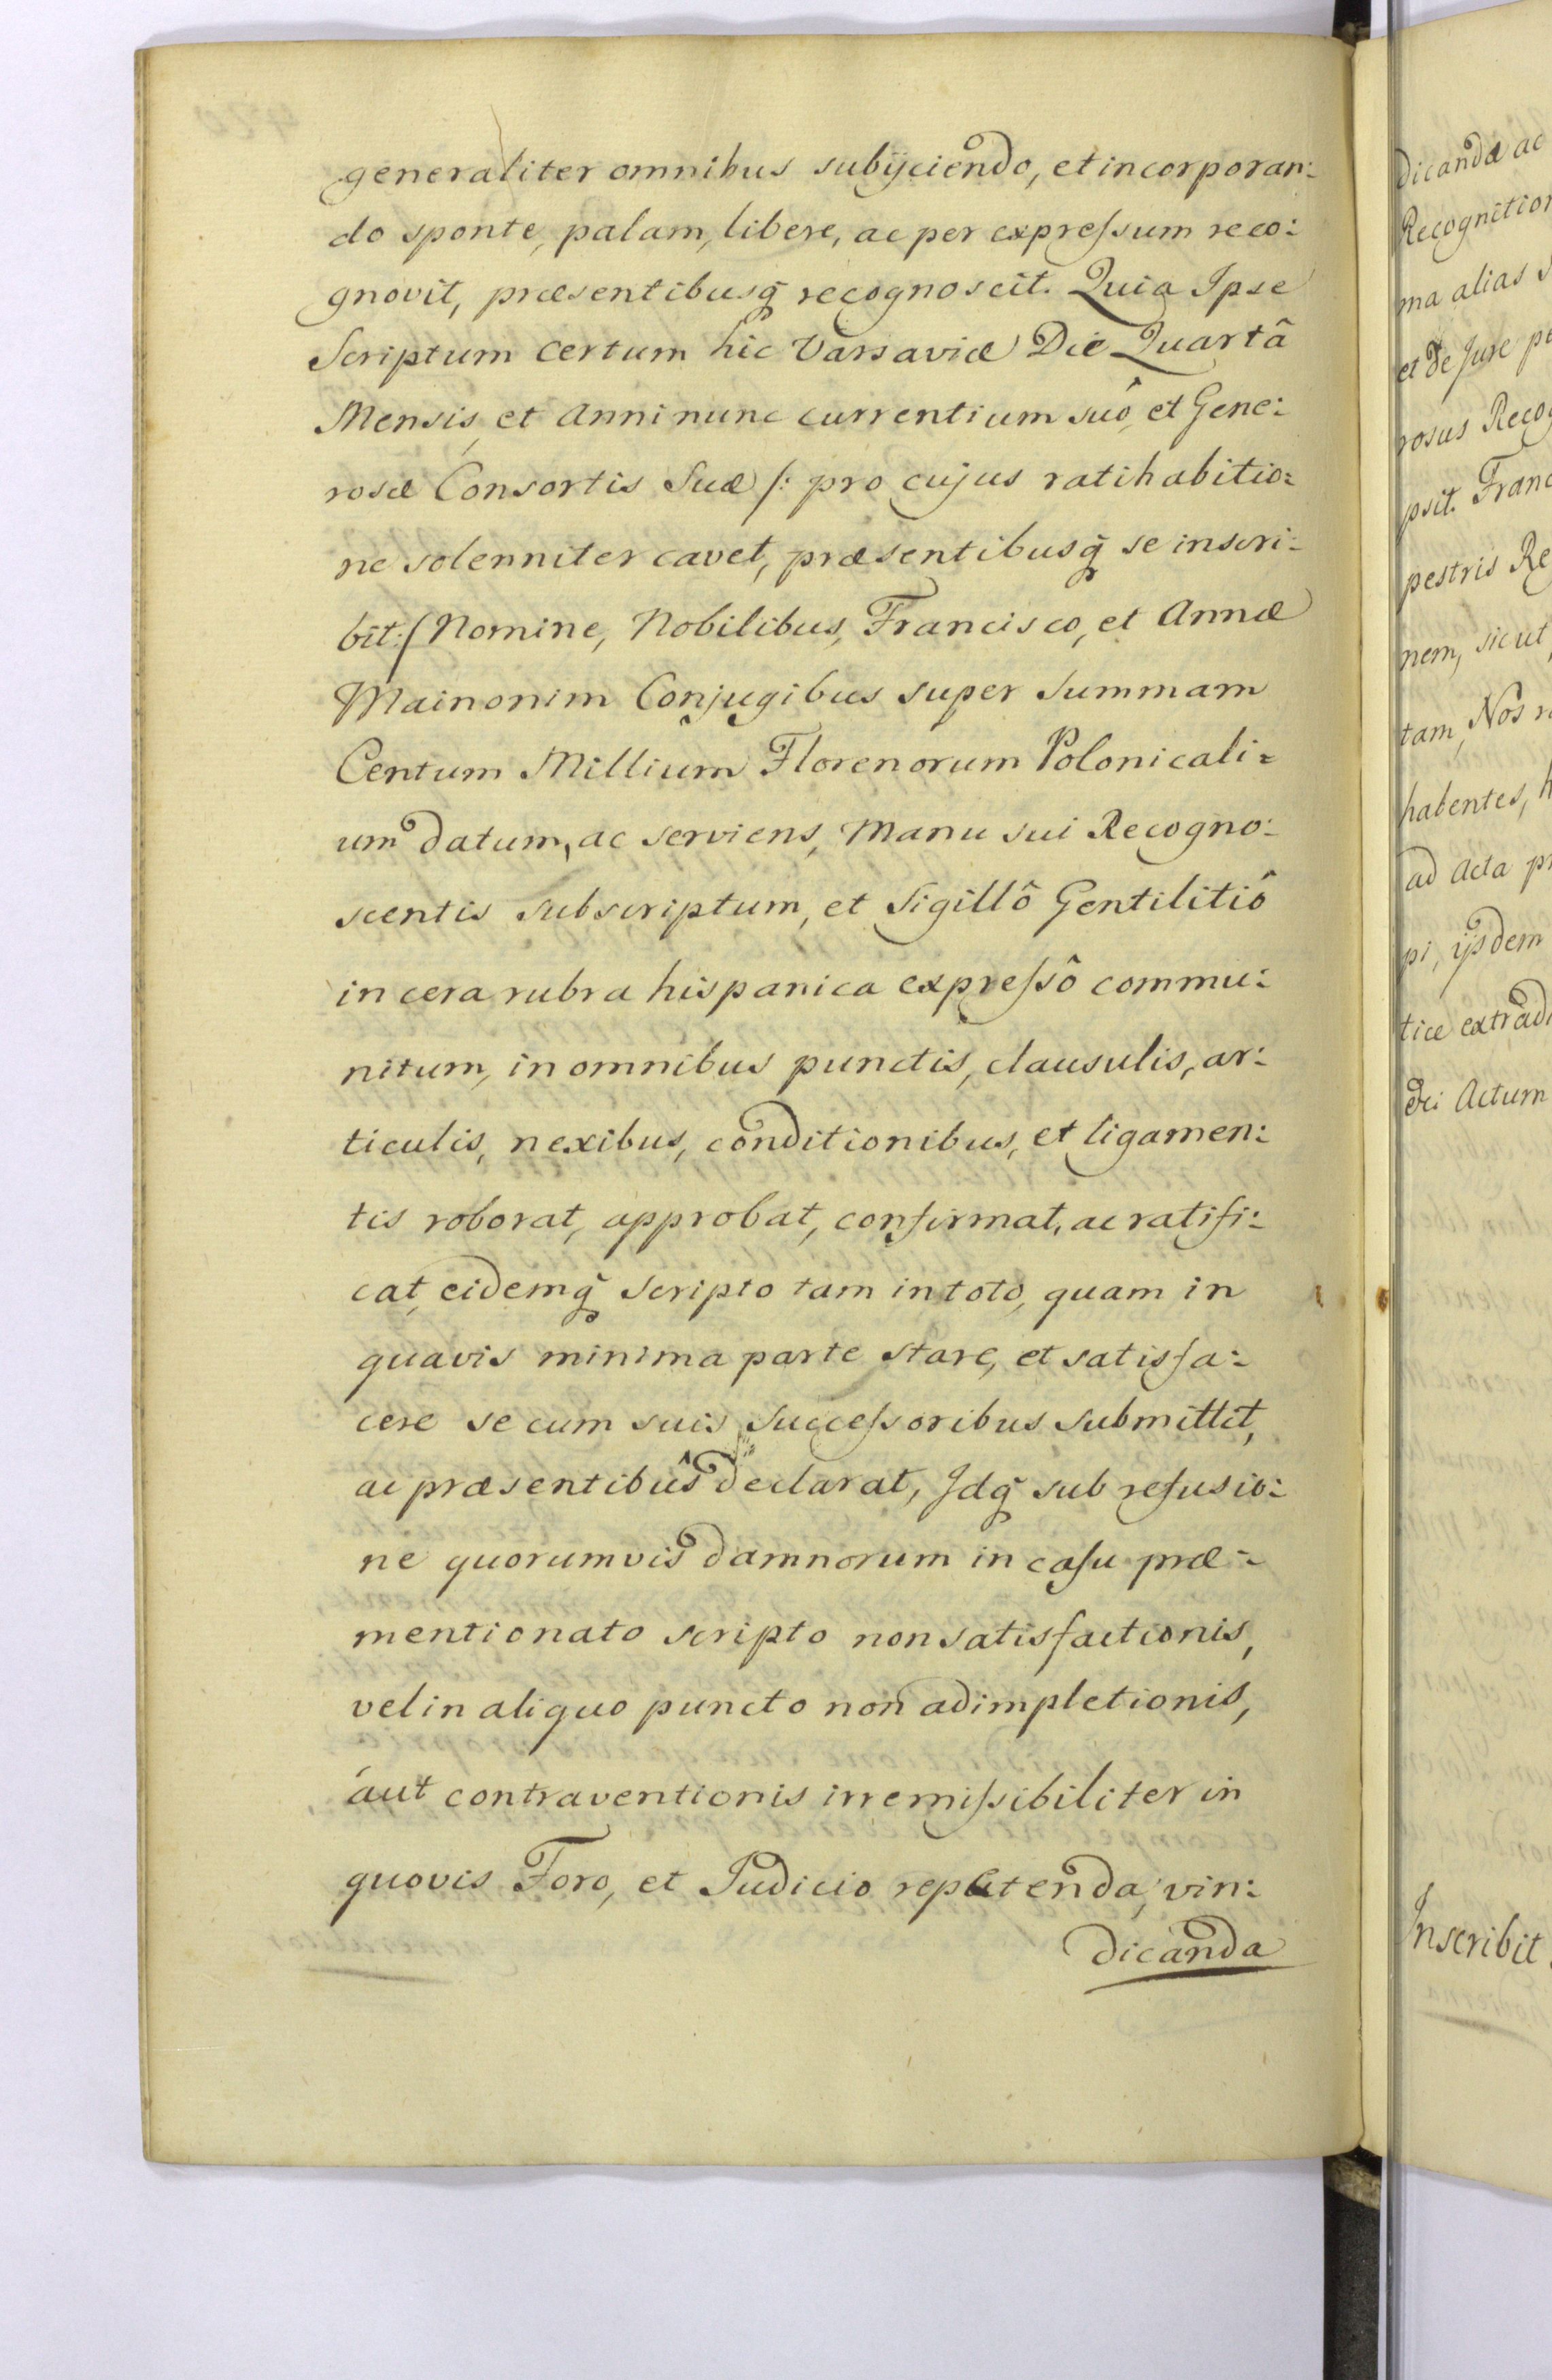 generaliter omnibus subijciendo, et incorporan:
do sponte, palam, libere, ac per expreſsum reco:
gnovit, præsentibusq̃ recognoscit. Quia Ipse
Scriptum certum hic Varsaviæ Die Quartâ
Mensis, et Anni nunc currentium suô, et Gene:
rosæ Consortis Suæ /: pro cujus ratihabitio:
ne solenniter cavet, præsentibusq̃ se inscri:
bit :/ Nomine, Nobilibus, Francisco, et Annæ
Mainonim Conjugibus super Summam
Centum Millium Florenorum Polonicali:
um datum, ac serviens, Manu sui Recogno:
scentis subscriptum, et Sigillô Gentilitiô
in cera rubra hispanica expreſsô commu:
nitum, in omnibus punctis, clausulis, ar:
ticulis, nexibus, conditionibus, et ligamen:
tis roborat, approbat, confirmat, ac ratifi:
cat, eidemq̃ Scripto tam in toto, quam in
quavis minima parte stare, et satisfa:
cere se cum suis Succeſsoribus Submittit,
ac præsentibus declarat, Idq̃ sub refusio:
ne quorumvis damnorum in caſu præ:
mentionato scripto non satisfactionis,
vel in aliquo puncto non adimpletionis,
aut contraventionis irremiſsibiliter in
quovis Foro, et Judicio repetenda, vin:
dicanda
dicandæ ac
Recognition
ma alias
et de Jure
rosus Recog
psit. Franc
pestris Re
nem, sicut
tam, Nos
habentes,
ad Acta
pi, ijsdem
tice extrad
Actum
Inscribit